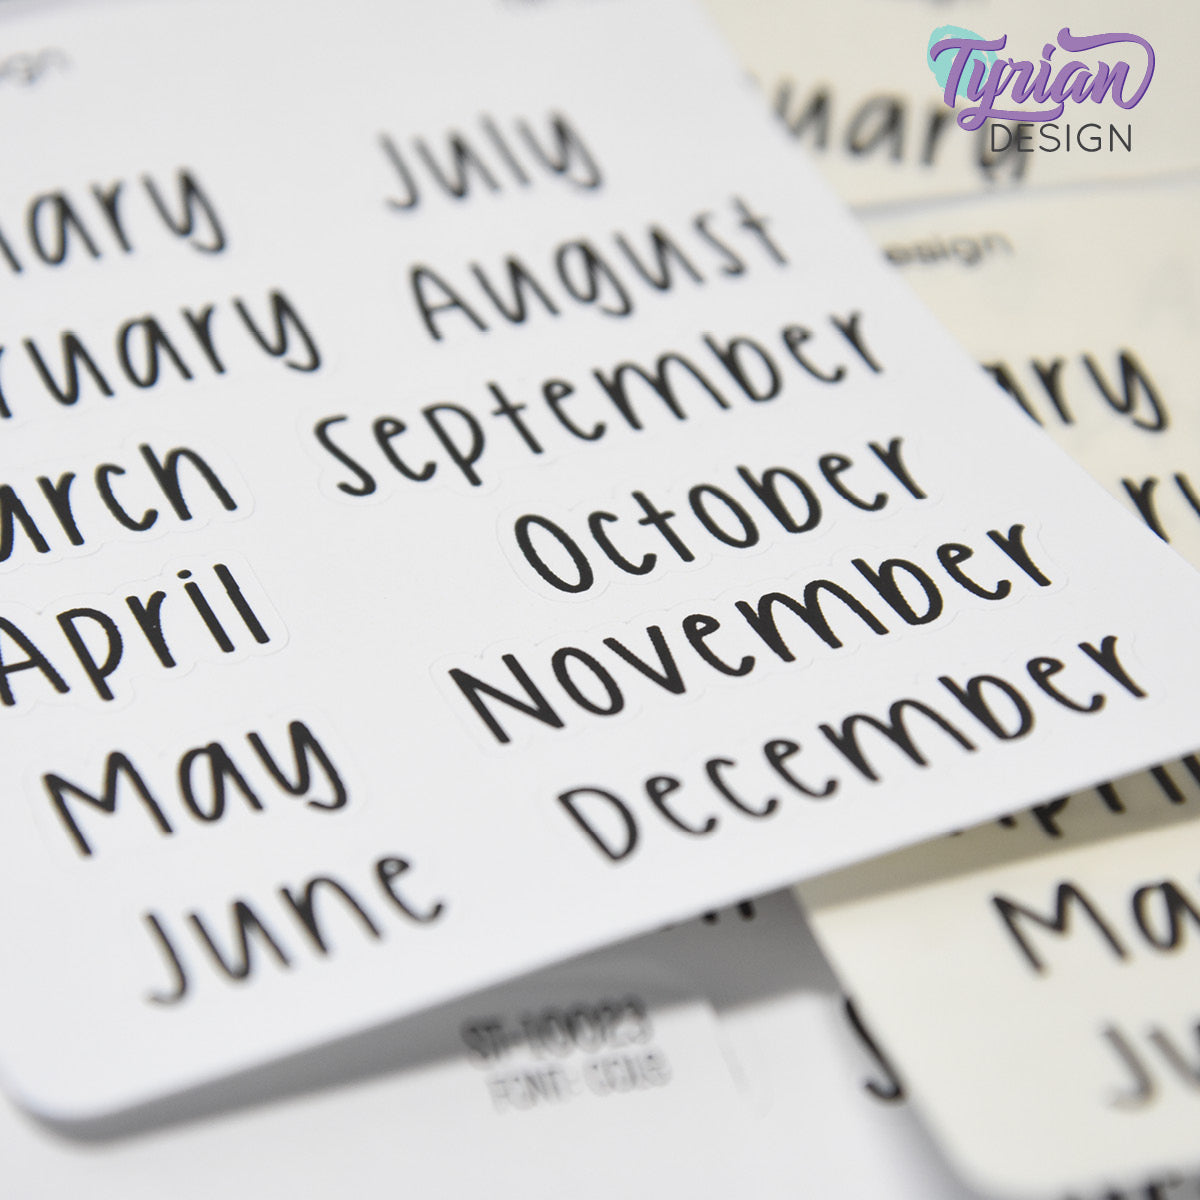 Tyrian
DESIGN
sign
uary
July
ruary
August
arch
September
April
October
May
November
June
December
uary
esign
ary
ry
April
Ma
Ju